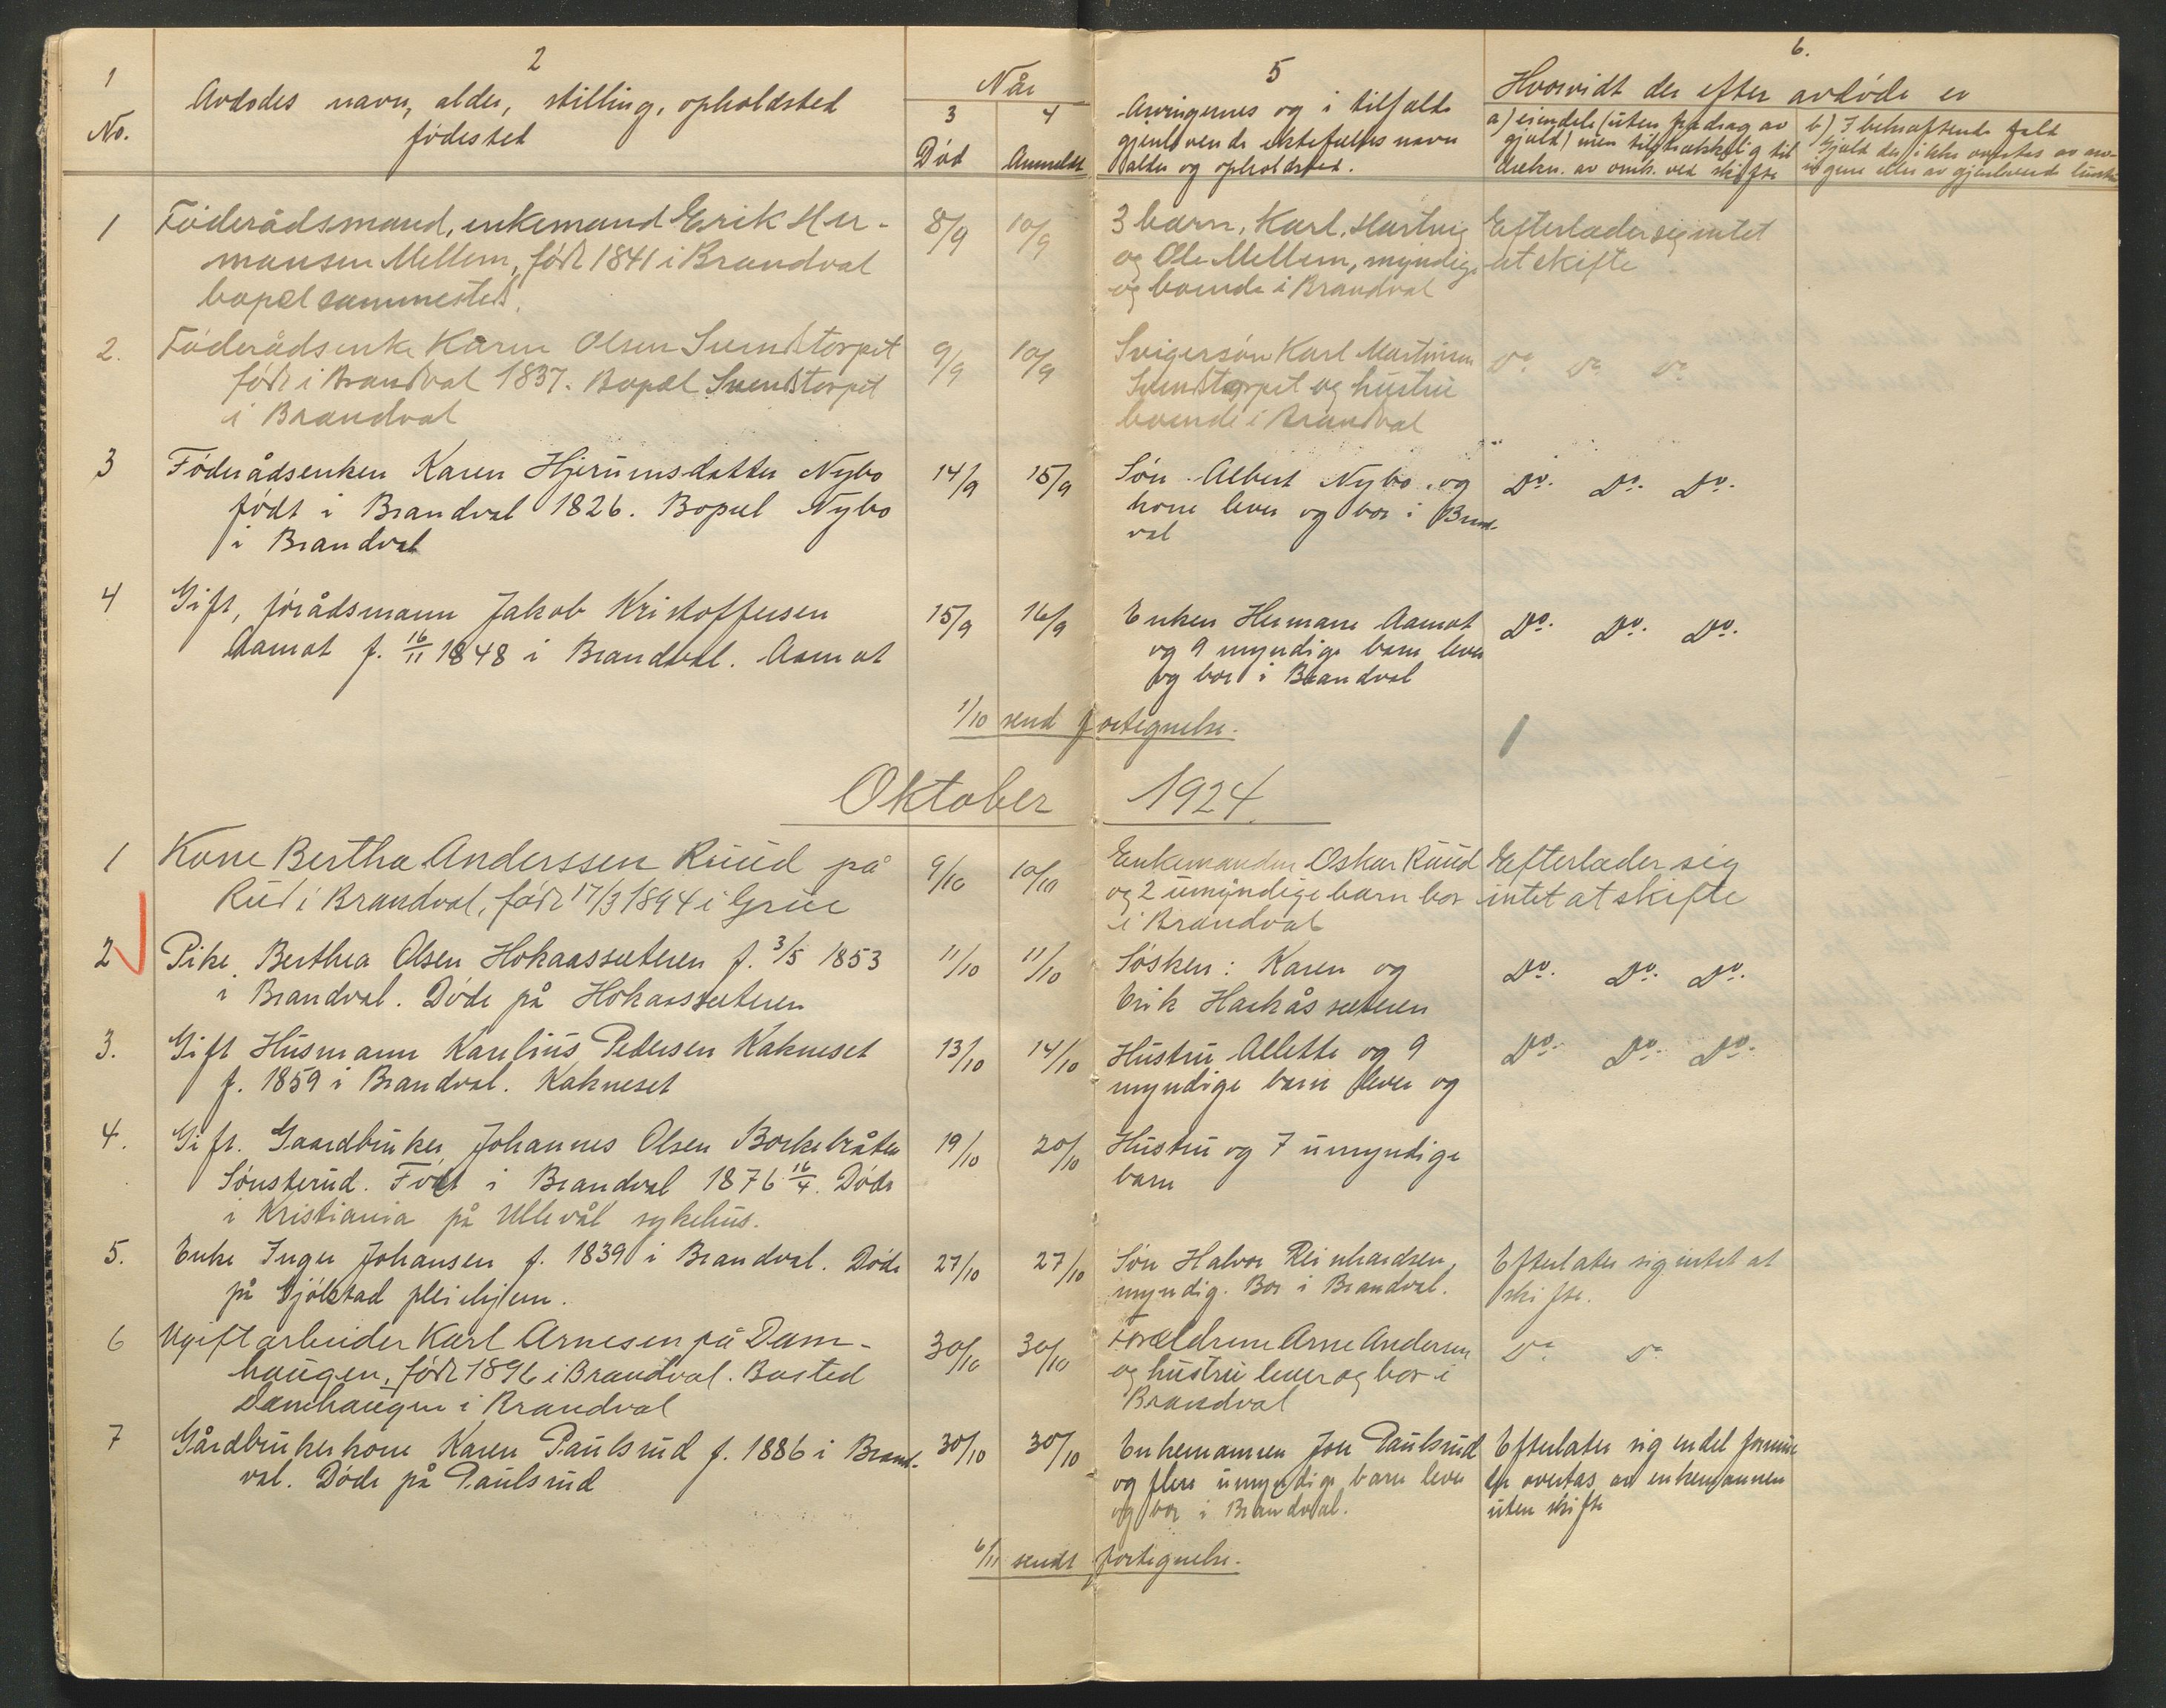 1
No.
2
Avdødes navn, alder, stilling, opholdsted
fødested
Når
3
Død
4
Anmeldt
5
Arvingernes og i tilfælde
gjenlevende ektefælles navn
alder og opholdsted.
6.
Hvorvidt der efter avdøde er
a) eiendele (uten fradrag av
gjæld) men tilstrækkelig til
dækn. av omk. ved skifte
b) I bekræftende fald
Gjæld der ikke overtas av arv-
ingene eller av gjenlevende
1 Føderådsmand, enkemand Erik Her-
mansen Mellem, født 1841 i Brandval
bopæl sammesteds.
8/9 10/9
3 barn, Karl, Hartvig
og Ole Mellem, myndige
og boende i Brandval
Efterlader sig intet
at skifte
2. Føderådsenke Karen Olsen Svendstorpet
født i Brandval 1837. Bopæl Svendstorpet
i Brandval
9/9 10/9
Svigersøn Karl Martinsen
Svendstorpet og hustru
boende i Brandval
Do. Do. Do.
3 Føderådsenken Karen Hjerumsdatter Nybo
født i Brandval 1826. Bopæl Nybo
i Brandval
14/9 15/9
Søn Albert Nybo og
kone lever og bor i Brand-
val
Do. Do. Do.
4 Gift, førådsmann Jakob Kristoffersen
Aamot f. 16/11 1848 i Brandval. Aamot
15/9 16/9
Enken Hermane Aamot
og 9 myndige barn lever
og bor i Brandval
Do. Do. Do.
1/10 send fortegnelse.
Oktober 1924
1 Kone Bertha Anderssen Ruud på
Rud i Brandval, født 17/3 1894 i Grue
9/10 10/10
Enkemanden Oskar Ruud
og 2 umyndige barn bor
i Brandval
Efterlader sig
intet at skifte
2 Pike, Berthea Olsen Hokaassæteren f. 3/5 1853
i Brandval. Døde på Hokaassæteren
11/10 11/10
Søsken: Karen og
Erik Haakåssæteren
Do. Do. Do.
3. Gift Husmann Karelius Pedersen Kakneset
f. 1859 i Brandval. Kakneset
13/10 14/10
Hustru Allette og 9
myndige barn lever og
Do. Do. Do.
4. Gift. Gaardbruker Johannes Olsen Borkebråten
Sønsterud. Født i Brandval 1876 16/4. Døde
i Kristiania på Ullevål sykehus.
19/10 20/10
Hustru og 7 umyndige
barn
5. Enke Inger Johansen f. 1839 i Brandval. Døde
på Sjølstad pleiehjem.
27/10 27/10
Søn Halvor Reinhardsen,
myndig. Bor i Brandval.
Efterlater sig intet at
skifte.
6 Ugift arbeider Karl Arnesen på Dam-
haugen, født 1896 i Brandval. Bosted
Damhaugen i Brandval
30/10 30/10
Forældrene Arne Andersen
og hustru lever og bor i
Brandval
Do. Do.
7 Gårdbrukerkone Karen Paulsrud f. 1886 i Brand-
val. Døde på Paulsrud
30/10 30/10
Enkemannen Jon Paulsrud
og flere umyndige barn lever
og bor i Brandval.
Efterlater sig endel formue
der overtas av enkemannen
uten skifte
6/11 sendt fortegnelse.